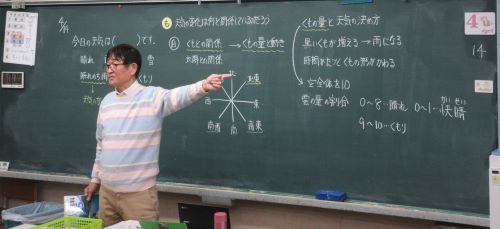 4/14
今日の天気は(　　)です。
晴れ
雪
くもり
天気の変化は何と関係しているだろう
くもとの関係 → くもの量と動き
方角との関係
北
北東
西
東
南西
南
南東
くもの量と天気の決め方
黒いくもが増える → 雨になる
時間がたつとくもの形がかわる
空全体を10
雲の量の割合
0〜8…晴れ
0〜1…快晴
かいせい
9〜10…くもり
4
April
14